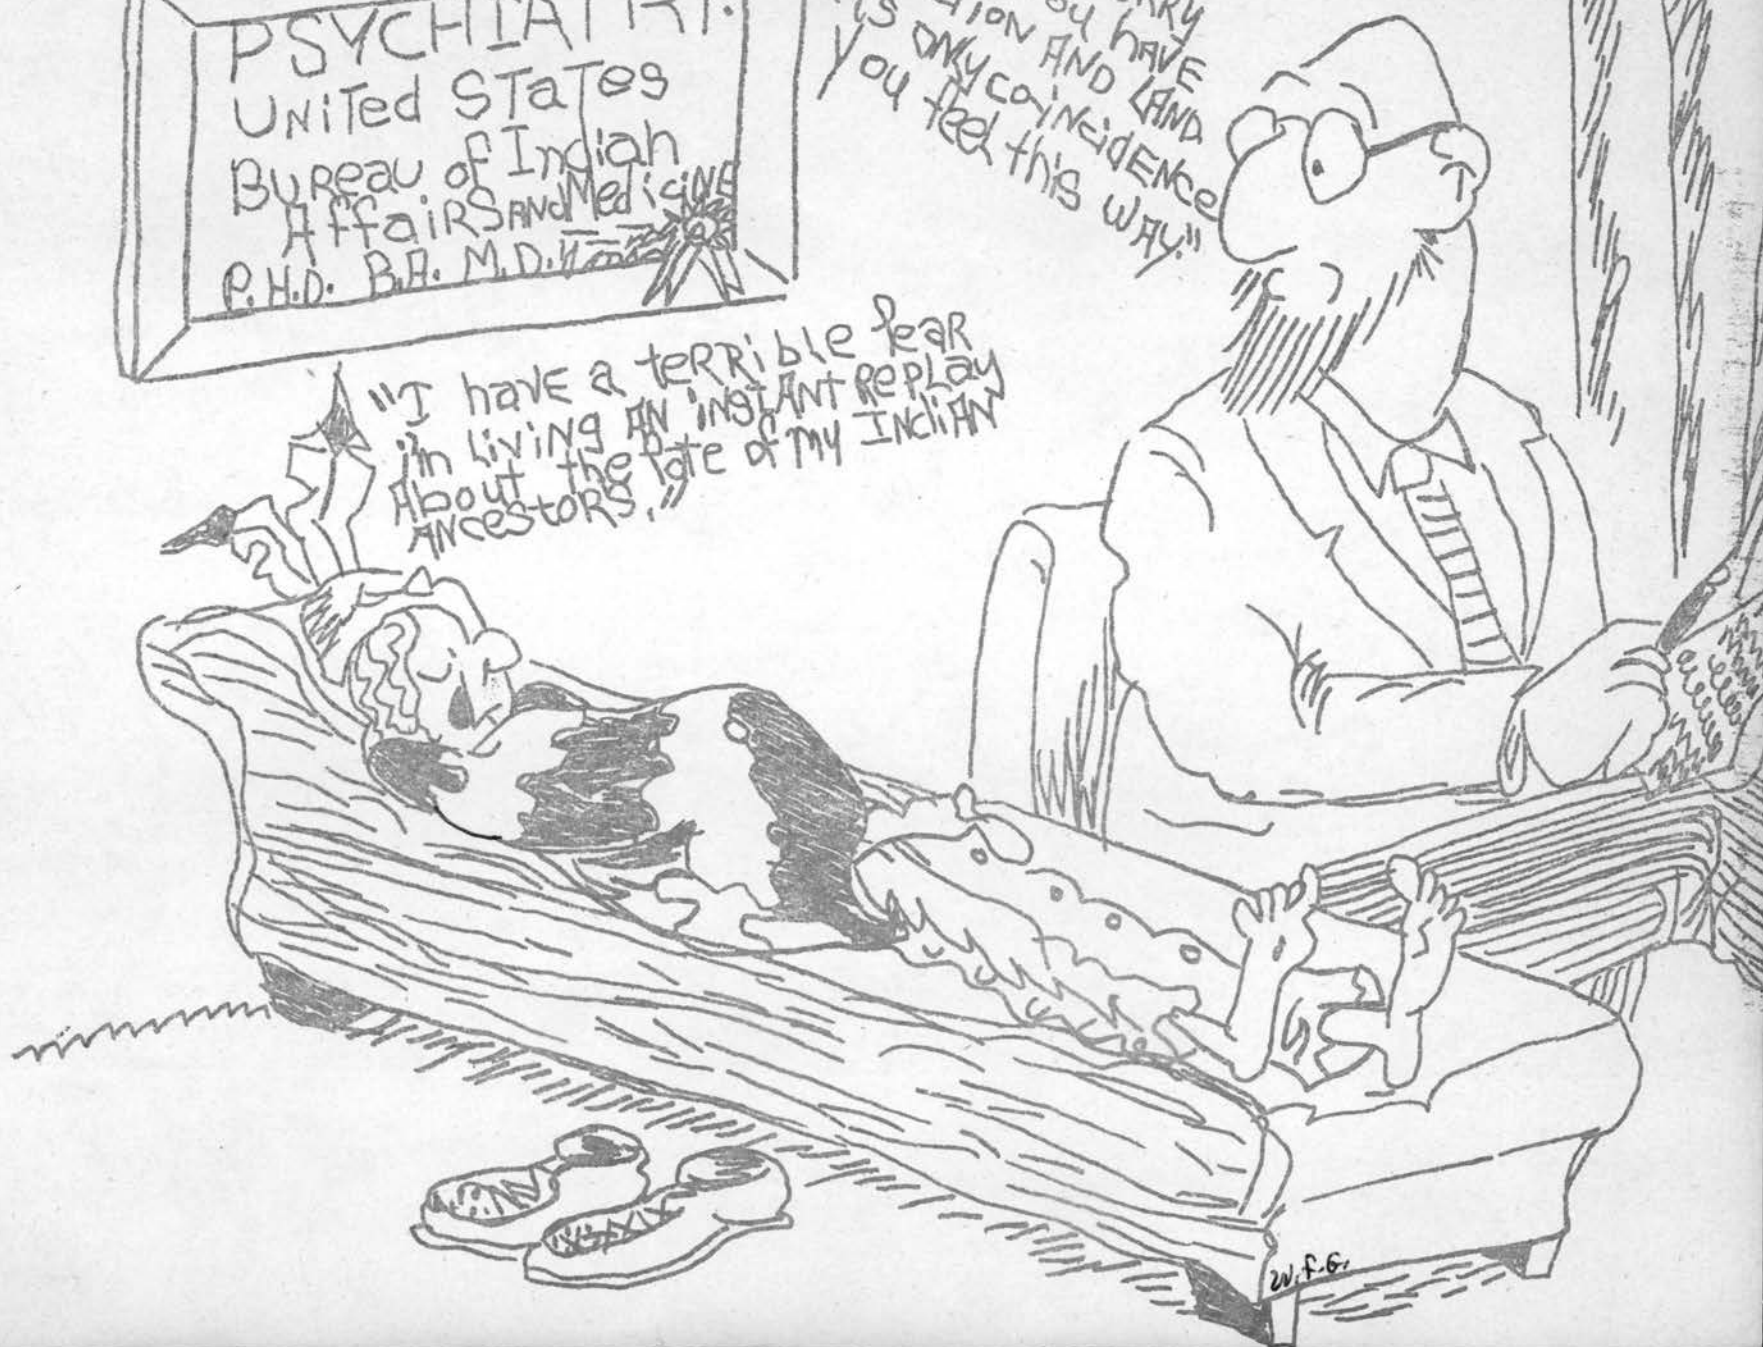 PSYCHIATRY.
UNiTed STaTes
BUReau of Indian
AffaiRS AND MedicINE
P.H.D. B.A. M.D.
ou HAVE
AND LAND
iS ONly coiNcidENce
You feel this WAY."
"I have a teRRible feaR
i'm living AN instANt RePlay
About the fate of my INdiAN
ANcestoRS."
W.F.G.